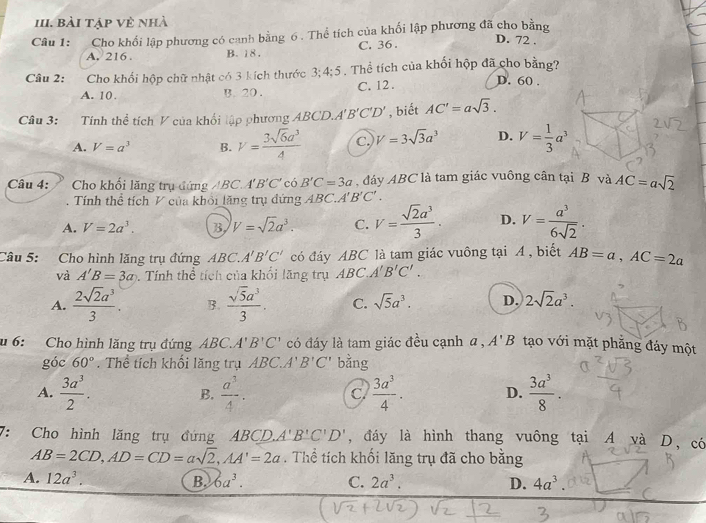 III. BÀI TẬP VỀ NHÀ
Câu 1: Cho khối lập phương có cạnh bằng 6. Thể tích của khối lập phương đã cho bằng
A. 216. B. 18. C. 36. D. 72.
Câu 2: Cho khối hộp chữ nhật có 3 kích thước 3;4;5. Thể tích của khối hộp đã cho bằng?
A. 10. B. 20. C. 12. D. 60.
Câu 3: Tính thể tích V của khối lập phương ABCD.A'B'C'D', biết AC' = a√3.
A. V = a³ B. V = 3√6a³/4 C. V = 3√3a³ D. V = 1/3 a³
Câu 4: Cho khối lăng trụ đứng ABC.A'B'C' có B'C = 3a, đáy ABC là tam giác vuông cân tại B và AC = a√2
. Tính thể tích V của khối lăng trụ đứng ABC.A'B'C'.
A. V = 2a³. B. V = √2a³. C. V = √2a³/3. D. V = a³/6√2.
Câu 5: Cho hình lăng trụ đứng ABC.A'B'C' có đáy ABC là tam giác vuông tại A, biết AB = a, AC = 2a
và A'B = 3a. Tính thể tích của khối lăng trụ ABC.A'B'C'.
A. 2√2a³/3. B. √5a³/3. C. √5a³. D. 2√2a³.
u 6: Cho hình lăng trụ đứng ABC.A'B'C' có đáy là tam giác đều cạnh a, A'B tạo với mặt phẳng đáy một
góc 60°. Thể tích khối lăng trụ ABC.A'B'C' bằng
A. 3a³/2. B. a³/4. C. 3a³/4. D. 3a³/8.
7: Cho hình lăng trụ đứng ABCD.A'B'C'D', đáy là hình thang vuông tại A và D, có
AB = 2CD, AD = CD = a√2, AA' = 2a. Thể tích khối lăng trụ đã cho bằng
A. 12a³. B. 6a³. C. 2a³. D. 4a³.